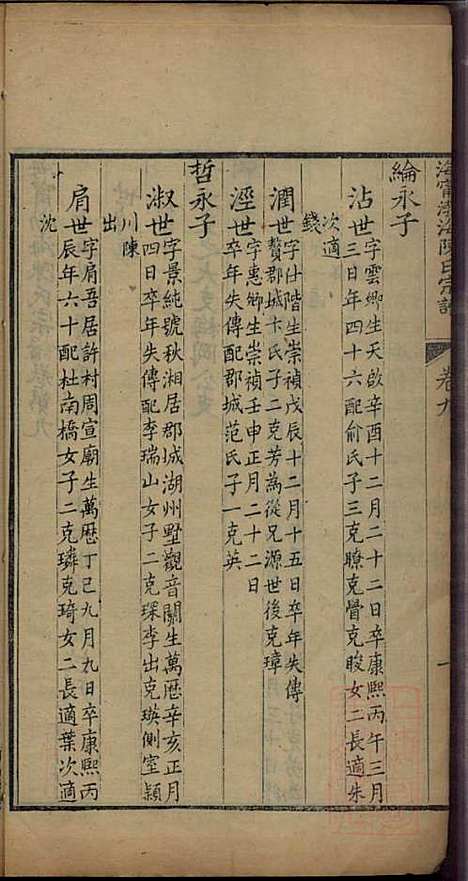 海甯渤海陳氏宗譜
卷九
一
綸永子
沾世字雲卿生天啟辛酉十二月二十二日卒康熙丙午三月
三日年四十六配俞氏子三克瞭克睂克睃女二長適朱
次適錢
潤世字仕階生崇禎戊辰十二月十五日卒年失傳
贅郡城卞氏子二克芳為從兄源世後克璋
溼世字惠卿生崇禎壬申正月二十二日
卒年失傳配郡城范氏子一克英
哲永子
淑世字景純號秋湘居郡城湖州墅觀音關生萬歷辛亥正月
四日卒年失傳配李瑞山女子二克琛李出克瑛側室穎
川陳出
肩世字肩吾居許村周宣廟生萬歷丁巳九月九日卒康熙丙
辰年六十配杜南橋女子二克璘克琦女二長適葉次適
沈